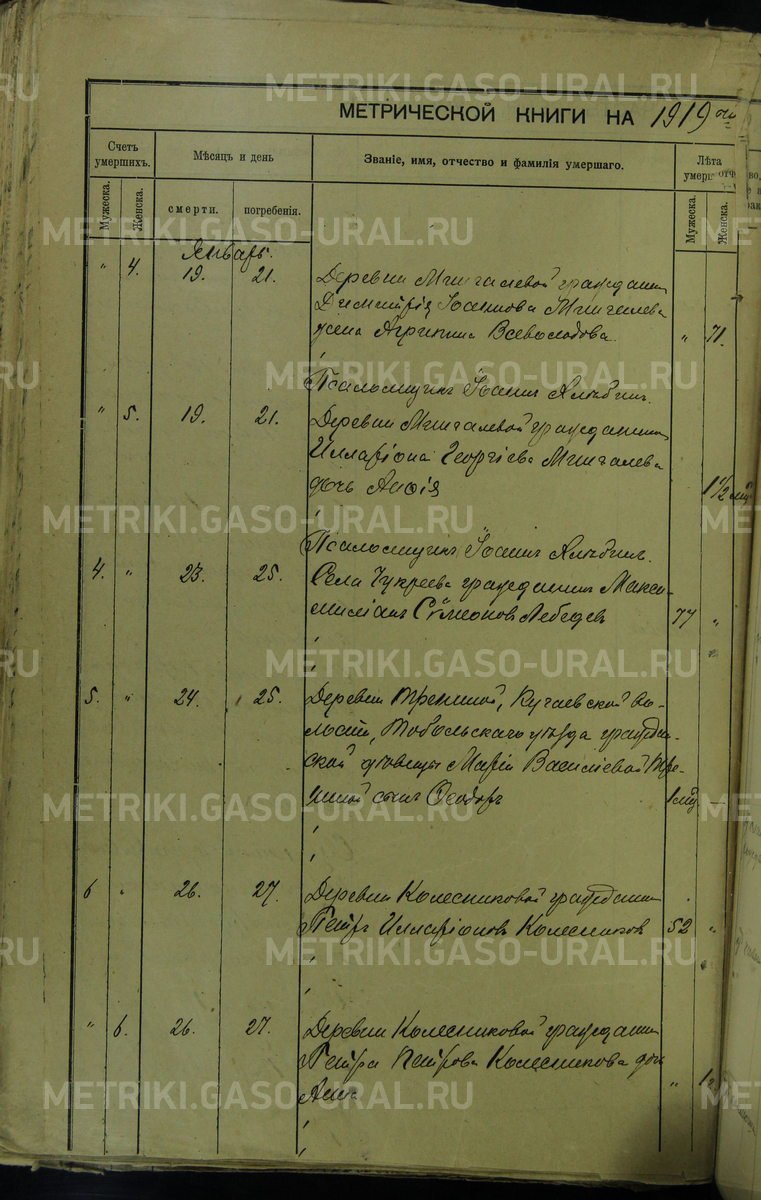 МЕТРИЧЕСКОЙ КНИГИ НА 1919 годъ
Счетъ умершихъ.
Мѣсяцъ и день
Званіе, имя, отчество и фамилія умершаго.
Лѣта умерш
Мужеска.
Женска.
смерти.
погребенія.
Мужеска.
Женска.
Январь.
" 4. 19. 21. Деревни Мингалевой гражданина
Димитрія Іоаннова Мингалева
жена Агрипина Всеволодова. " 71.
Псаломщикъ Іоаннъ
" 5. 19. 21. Деревни Мингалевой гражданина
Илларіона Георгіева Мингалева
дочь Анѳія 1 1/2 мѣс
Псаломщикъ Іоаннъ
4. " 23. 25. Села Чукреева гражданинъ Макси-
миліанъ Сѵмеоновъ Лебедевъ 77 "
5. " 24. 25. Деревни Трениной, Кугаевской во-
лости, Тобольскаго уѣзда граждан-
ской дѣвицы Маріи Василіевой Тре-
ниной сынъ Ѳеодоръ 1 мѣс —
6 " 26. 27. Деревни Колесниковой гражданинъ
Петръ Илларіоновъ Колесниковъ 52 "
" 6. 26. 27. Деревни Колесниковой гражданина
Петра Петрова Колесникова дочь
Анна "
METRIKI.GASO-URAL.RU